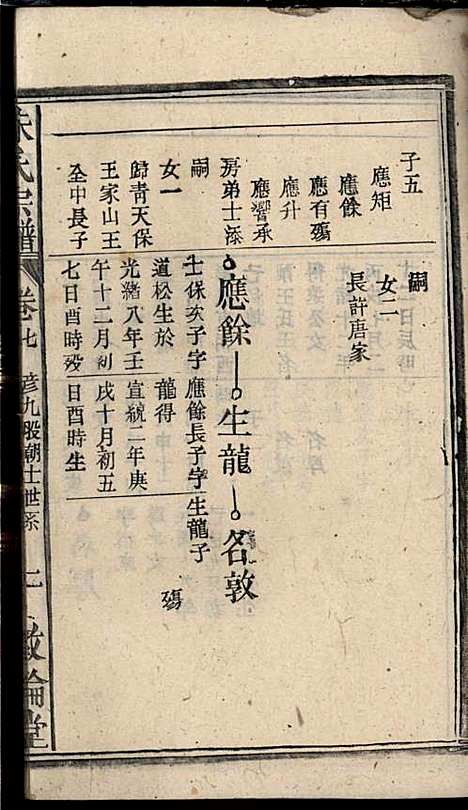 子五
應矩
應餘
應有殤
應升
應響承
房弟士添
嗣
女一
歸青天保
王家山王
全中長子
嗣
女二
長許唐家
應餘 生龍 名敦
士保次子字
道松生於
光緒八年壬
午十二月初
七日酉時歿
應餘長子字
龍得
宣統二年庚
戌十月初五
日酉時生
生龍子
殤
朱氏宗譜 卷七 彦九股朝士世系 敦倫堂